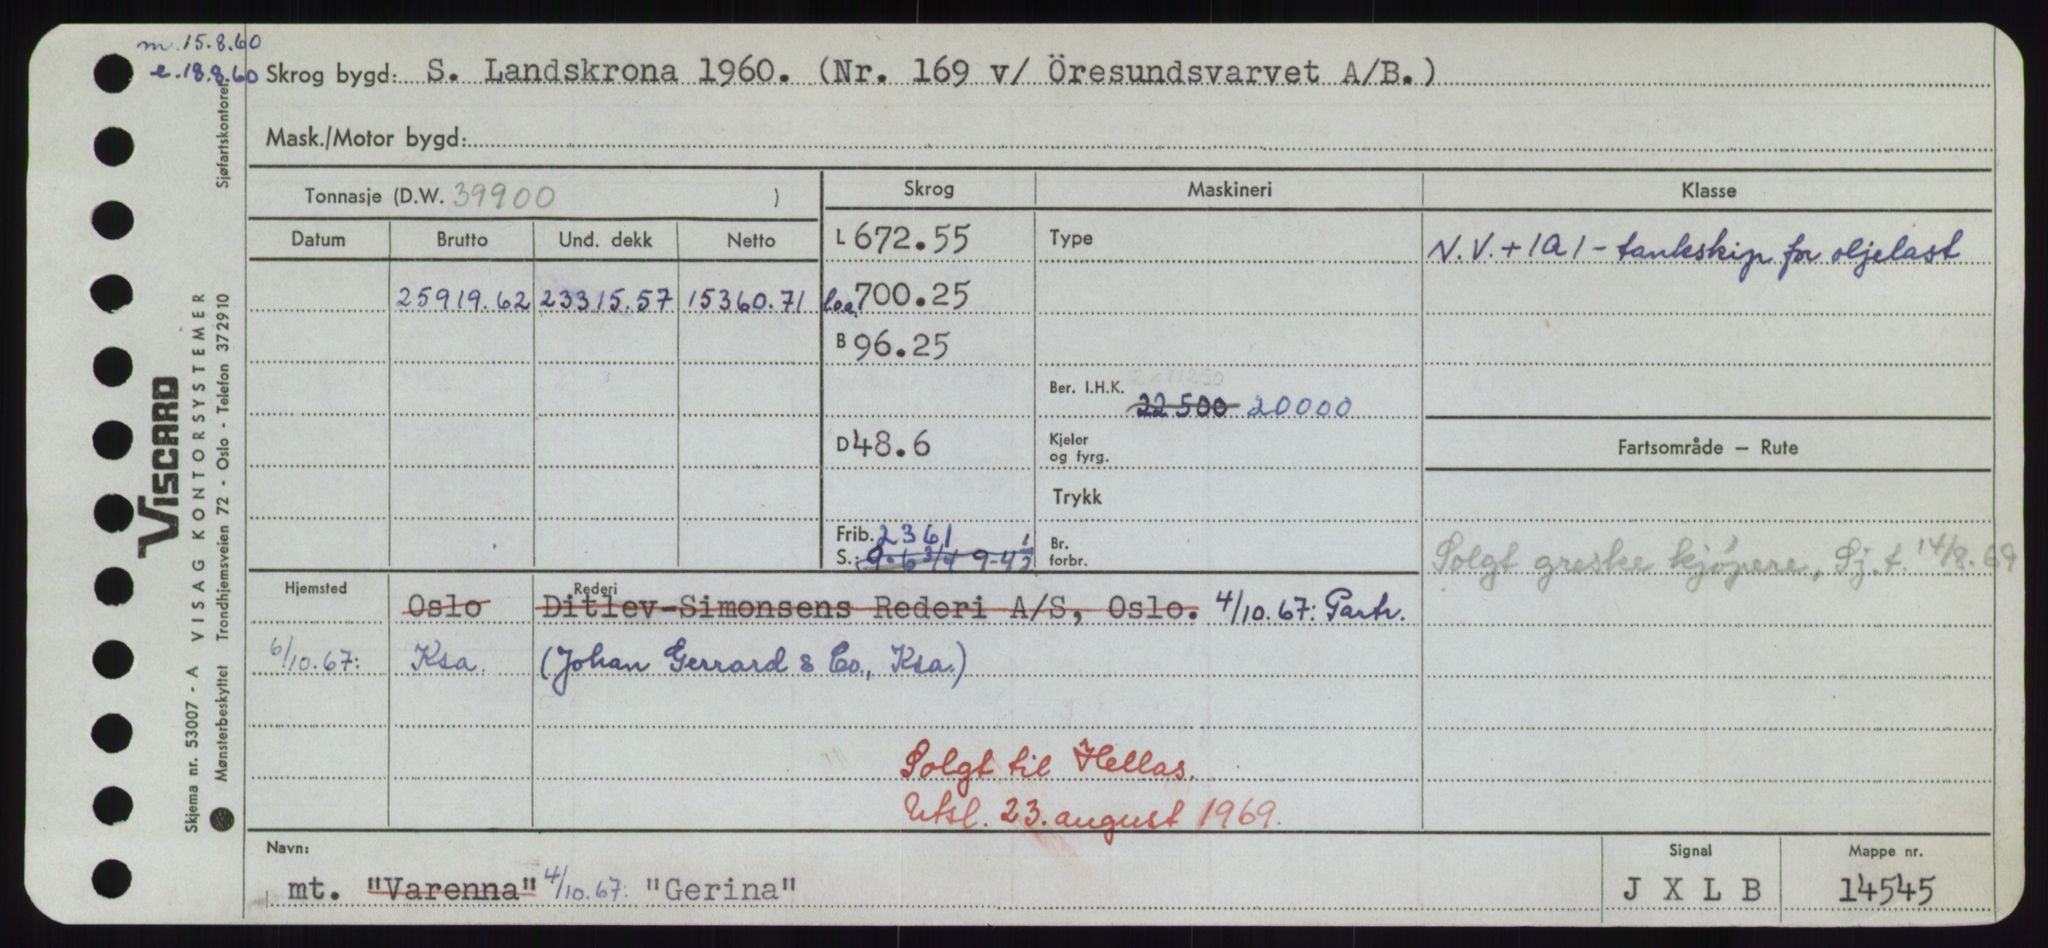 m. 15.8.60
e. 18.8.60 Skrog bygd: S. Landskrona 1960. (Nr. 169 v/ Öresundsvarvet A/B.)
Mask./Motor bygd:
Tonnasje (D.W. 39900 )
Skrog
Maskineri
Klasse
Datum Brutto Und. dekk Netto
L 672.55
Type
N.V. + 1A1 - tankskip for oljelast
25919.62 23315.57 15360.71
loa 700.25
B 96.25
Ber. I.H.K. 22500 20000
D 48.6
Kjeler
og fyrg.
Fartsområde — Rute
Trykk
Frib. 2361
S.: 9-6 3/4 9-4 1/2
Br.
forbr.
Solgt greske kjøpere, Sj.t. 14/8.69
Hjemsted
Rederi
Oslo Ditlev-Simonsens Rederi A/S, Oslo. 4/10.67: Partr.
6/10.67: Ksa. (Johan Gerrard & Co., Ksa.)
Solgt til Hellas.
Utsl. 23. august 1969.
Navn:
mt. "Varenna" 4/10.67: "Gerina"
Signal
J X L B
Mappe nr.
14545
VISCARD
Skjema nr. 53007 - A VISAG KONTORSYSTEMER
Mønsterbeskyttet Trondhjemsveien 72 - Oslo - Telefon 372910
Sjøfartskontoret